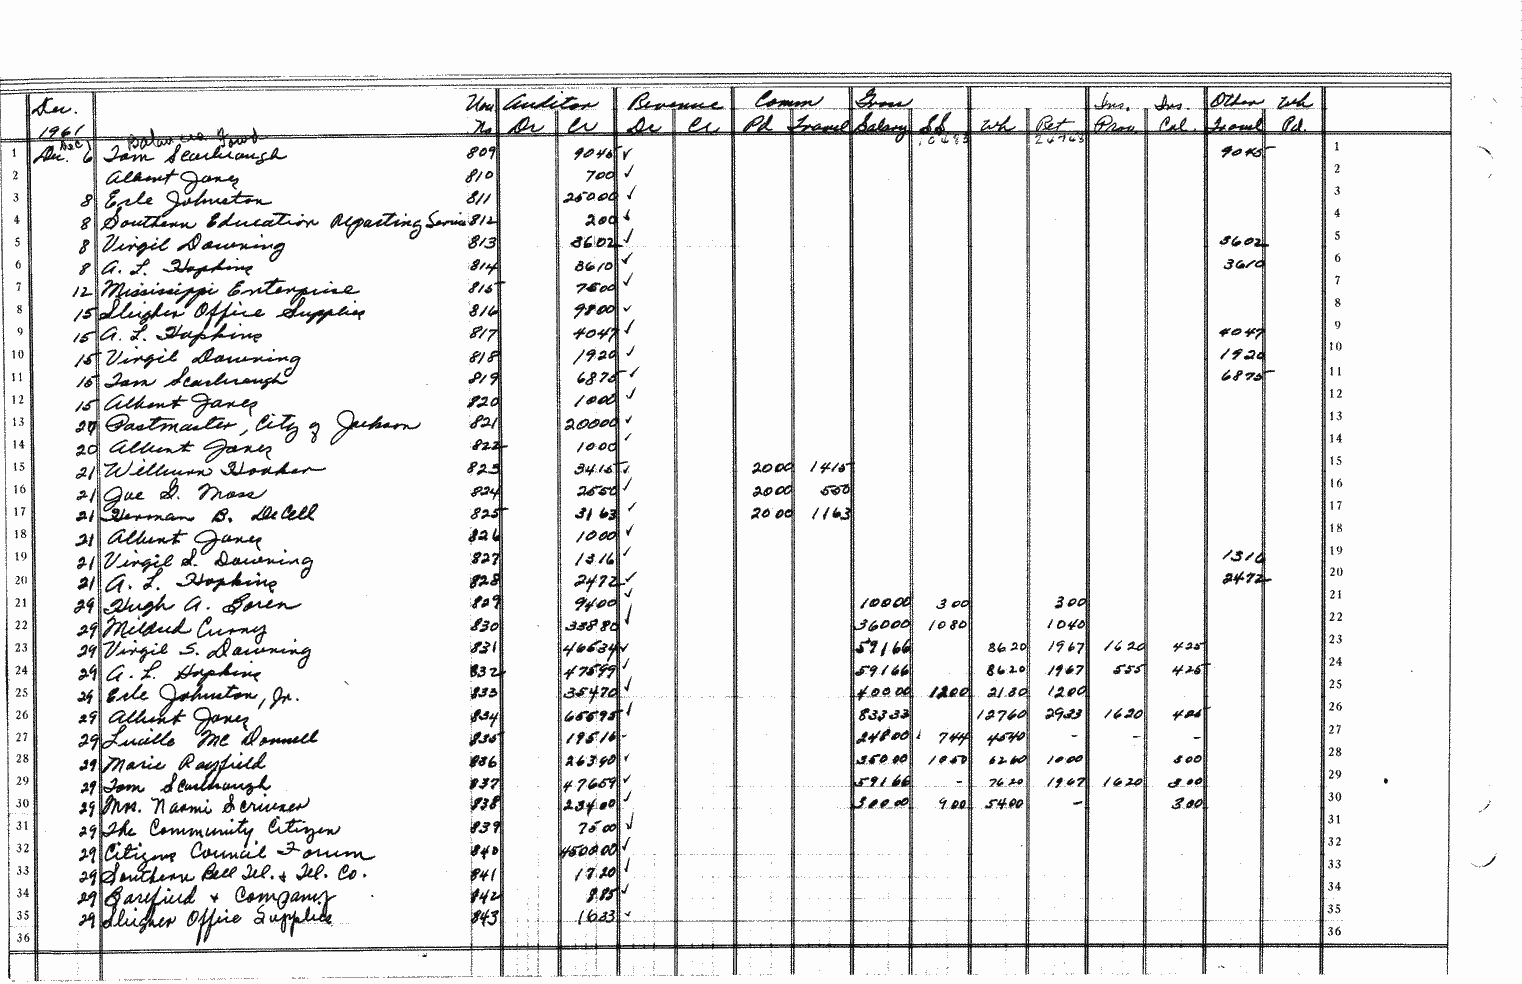 Dec. Vou. Auditor Revenue Comm Gross Ins. Ins. Other Wh
1961 Balances Forwd No Dr Cr Dr Cr. Pd Travel Salary SS Wh Ret Prov. Cal. Travel Pd.
Dec 1 10483 26763
1 Dec. 6 Tom Scarbrough 809 9045 ✓ 9045 1
2 Albert Jones 810 700 ✓ 2
3 8 Erle Johnston 811 25000 ✓ 3
4 8 Southern Education Reporting Service 812 200 ✓ 4
5 8 Virgil Downing 813 3602 ✓ 3602 5
6 8 A. L. Hopkins 814 3610 ✓ 3610 6
7 12 Mississippi Enterprise 815 7500 ✓ 7
8 15 Sligher Office Supplies 816 9800 ✓ 8
9 15 A. L. Hopkins 817 4047 ✓ 4047 9
10 15 Virgil Downing 818 1920 ✓ 1920 10
11 15 Tom Scarbrough 819 6875 ✓ 6875 11
12 15 Albert Jones 820 1000 ✓ 12
13 20 Postmaster, City of Jackson 821 20000 ✓ 13
14 20 Albert Jones 822 1000 ✓ 14
15 21 Wilburn Hooker 823 3415 ✓ 2000 1415 15
16 21 Joe G. Moss 824 2550 ✓ 2000 550 16
17 21 Herman B. DeCell 825 3163 ✓ 2000 1163 17
18 21 Albert Jones 826 1000 ✓ 18
19 21 Virgil S. Downing 827 1316 ✓ 1316 19
20 21 A. L. Hopkins 828 2472 ✓ 2472 20
21 29 Hugh A. Boren 829 9400 ✓ 10000 300 300 21
22 29 Mildred Curry 830 33880 ✓ 36000 1080 1040 22
23 29 Virgil S. Downing 831 46534 ✓ 59166 8620 1967 1620 425 23
24 29 A. L. Hopkins 832 47599 ✓ 59166 8620 1967 555 425 24
25 29 Erle Johnston, Jr. 833 35470 ✓ 40000 1200 2130 1200 25
26 29 Albert Jones 834 65595 ✓ 83333 12760 2933 1620 425 26
27 29 Lucille McDonnell 835 19516 - 24800 744 4540 - - - 27
28 29 Marie Rayfield 836 26390 ✓ 35000 1050 6260 1000 300 28
29 29 Tom Scarbrough 837 47659 ✓ 59166 - 7620 1967 1620 300 29
30 29 Mrs. Naomi Scrivner 838 23400 ✓ 30000 900 5400 - 300 30
31 29 The Community Citizen 839 7500 ✓ 31
32 29 Citizens Council Forum 840 450000 ✓ 32
33 29 Southern Bell Tel. & Tel. Co. 841 1720 ✓ 33
34 29 Barefield & Company 842 885 ✓ 34
35 29 Sligher Office Supplies 843 1633 ✓ 35
36 36